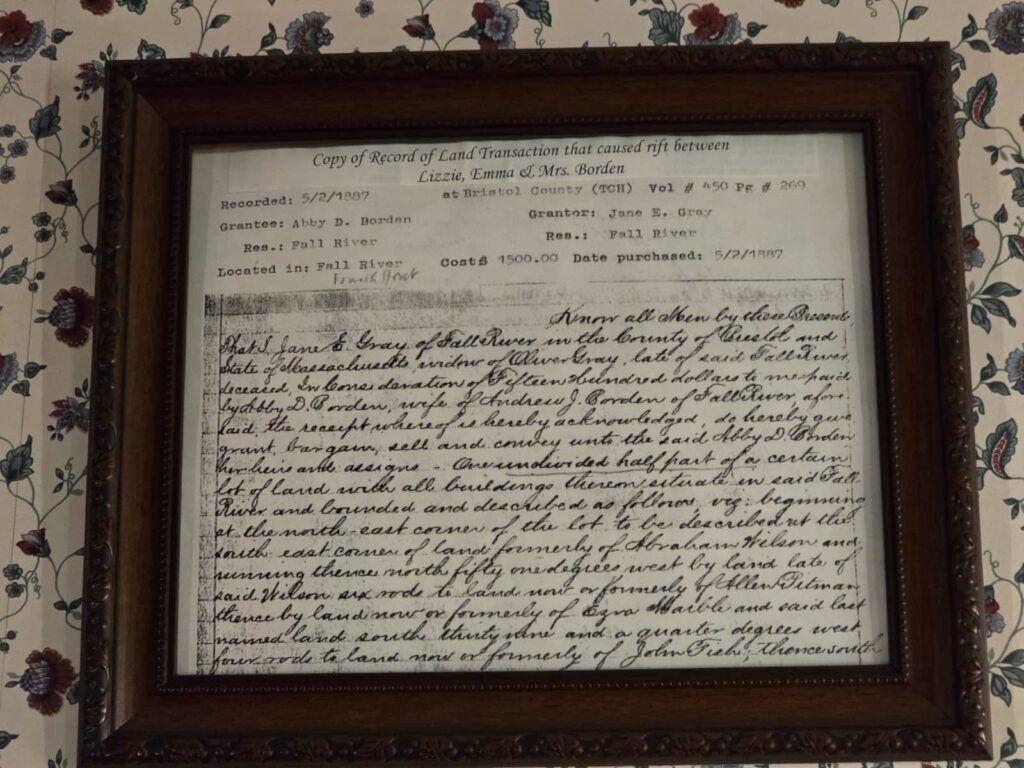 Copy of Record of Land Transaction that caused rift between
Lizzie, Emma & Mrs. Borden
Recorded: 5/2/1887 at Bristol County (TCH) Vol # 450 Pg # 269
Grantee: Abby D. Borden Grantor: Jane E. Gray
Res.: Fall River Res.: Fall River
Located in: Fall River Cost$ 1500.00 Date purchased: 5/2/1887
Fourth
Know all Men by these Presents,
That I, Jane E. Gray of Fall River in the County of Bristol and
State of Massachusetts, widow of Oliver Gray, late of said Fall River,
deceased, In Consideration of Fifteen Hundred dollars to me paid
by Abby D. Borden, wife of Andrew J. Borden of Fall River, afore-
said, the receipt whereof is hereby acknowledged, do hereby give
grant, bargain, sell and convey unto the said Abby D. Borden
her heirs and assigns - One undivided half part of a certain
lot of land with all buildings thereon situate in said Fall
River and bounded and described as follows, viz: beginning
at the north-east corner of the lot to be described at the
south east corner of land formerly of Abraham Wilson and
running thence north fifty one degrees west by land late of
said Wilson six rods to land now or formerly of Allen Pitman
thence by land now or formerly of Ezra Marble and said last
named land south thirty nine and a quarter degrees west
four rods to land now or formerly of John Fish; thence south